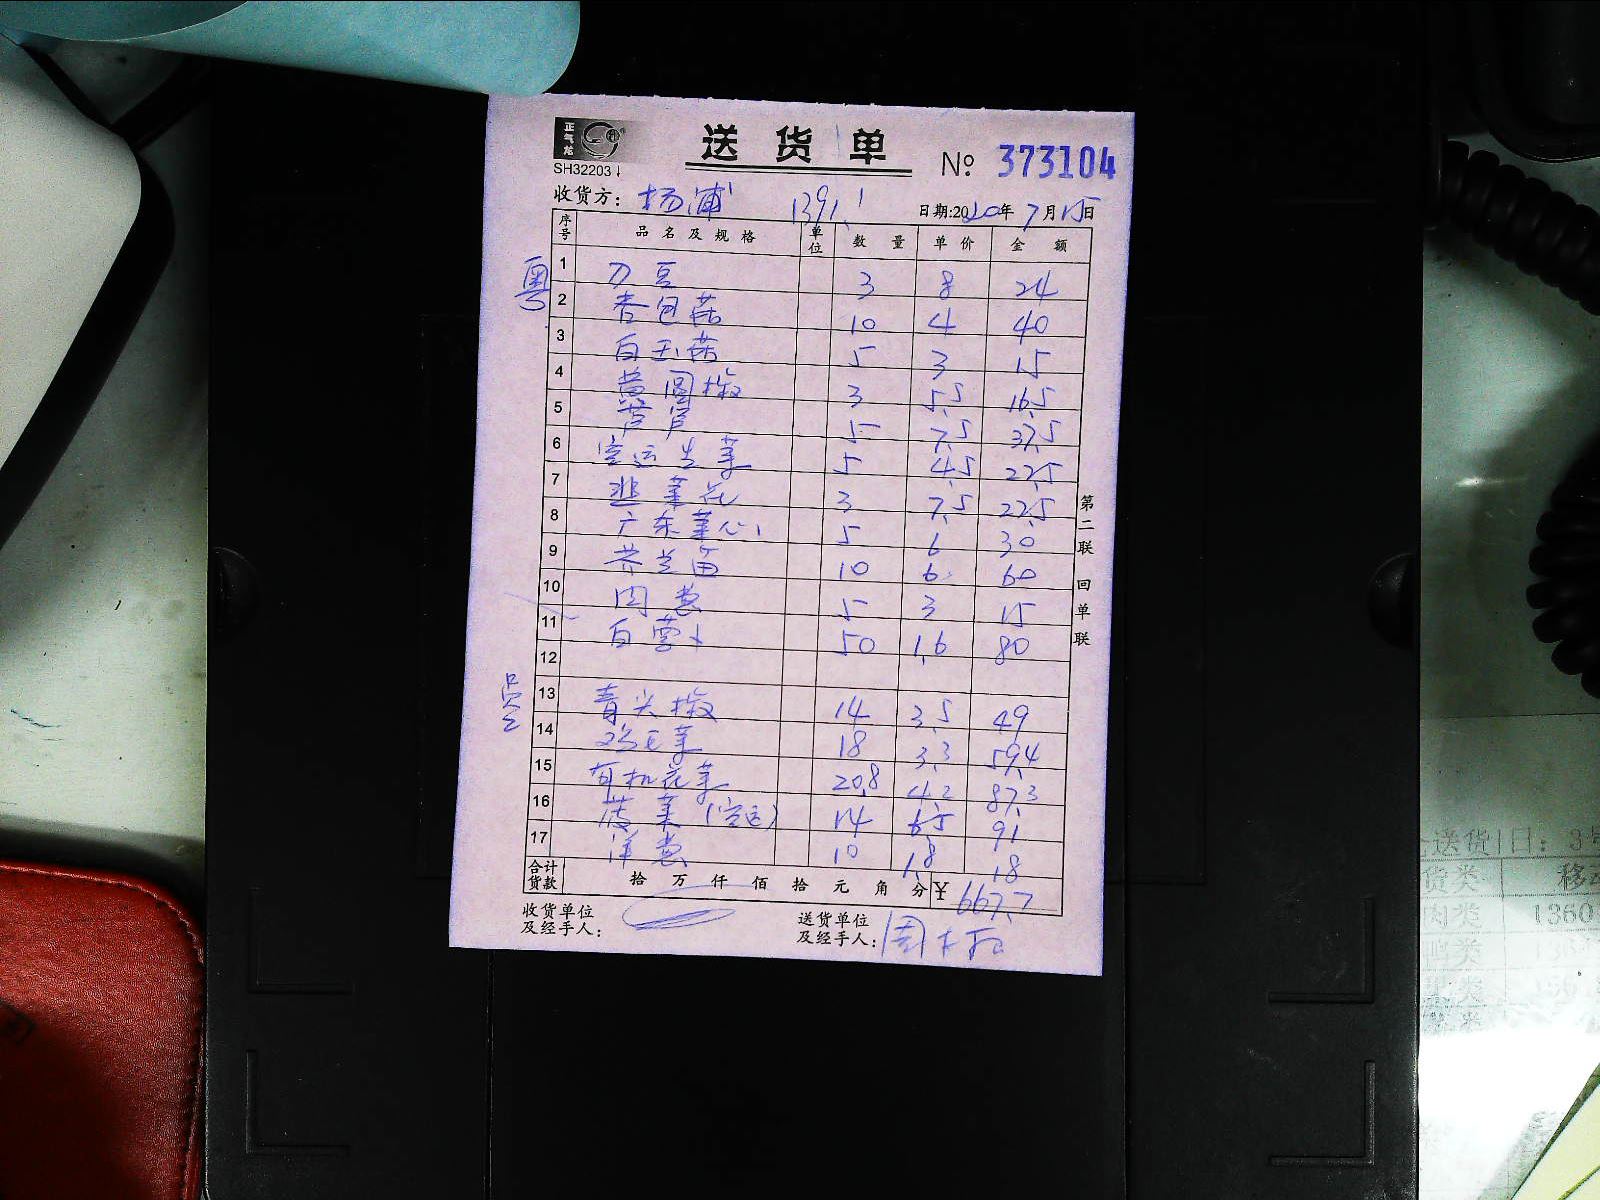 正气龙
送货单
SH32203
№ 373104
收货方: 杨浦 1391.1 日期:2020年7月15日
序号 品名及规格 单位 数量 单价 金额
粤
1 刀豆 3 8 24
2 杏包菇 10 4 40
3 白玉菇 5 3 15
4 黄圆椒 3 5.5 16.5
5 芦笋 5 7.5 37.5
6 空运生菜 5 4.5 22.5
7 韭菜花 3 7.5 22.5
8 广东菜心 5 6 30
9 芥兰苗 10 6 60
10 肉葱 5 3 15
11 白萝卜 50 1.6 80
12
13 青尖椒 14 3.5 49
14 鸡毛菜 18 3.3 59.4
15 有机花菜 20.8 4.2 87.3
16 菠菜(空运) 14 6.5 91
17 洋葱 10 1.8 18
合计货款 拾 万 仟 佰 拾 元 角 分 ¥ 667.7
收货单位及经手人:
送货单位及经手人: 周
第二联 回单联
送货 日: 3号
货类 移动
肉类 1360